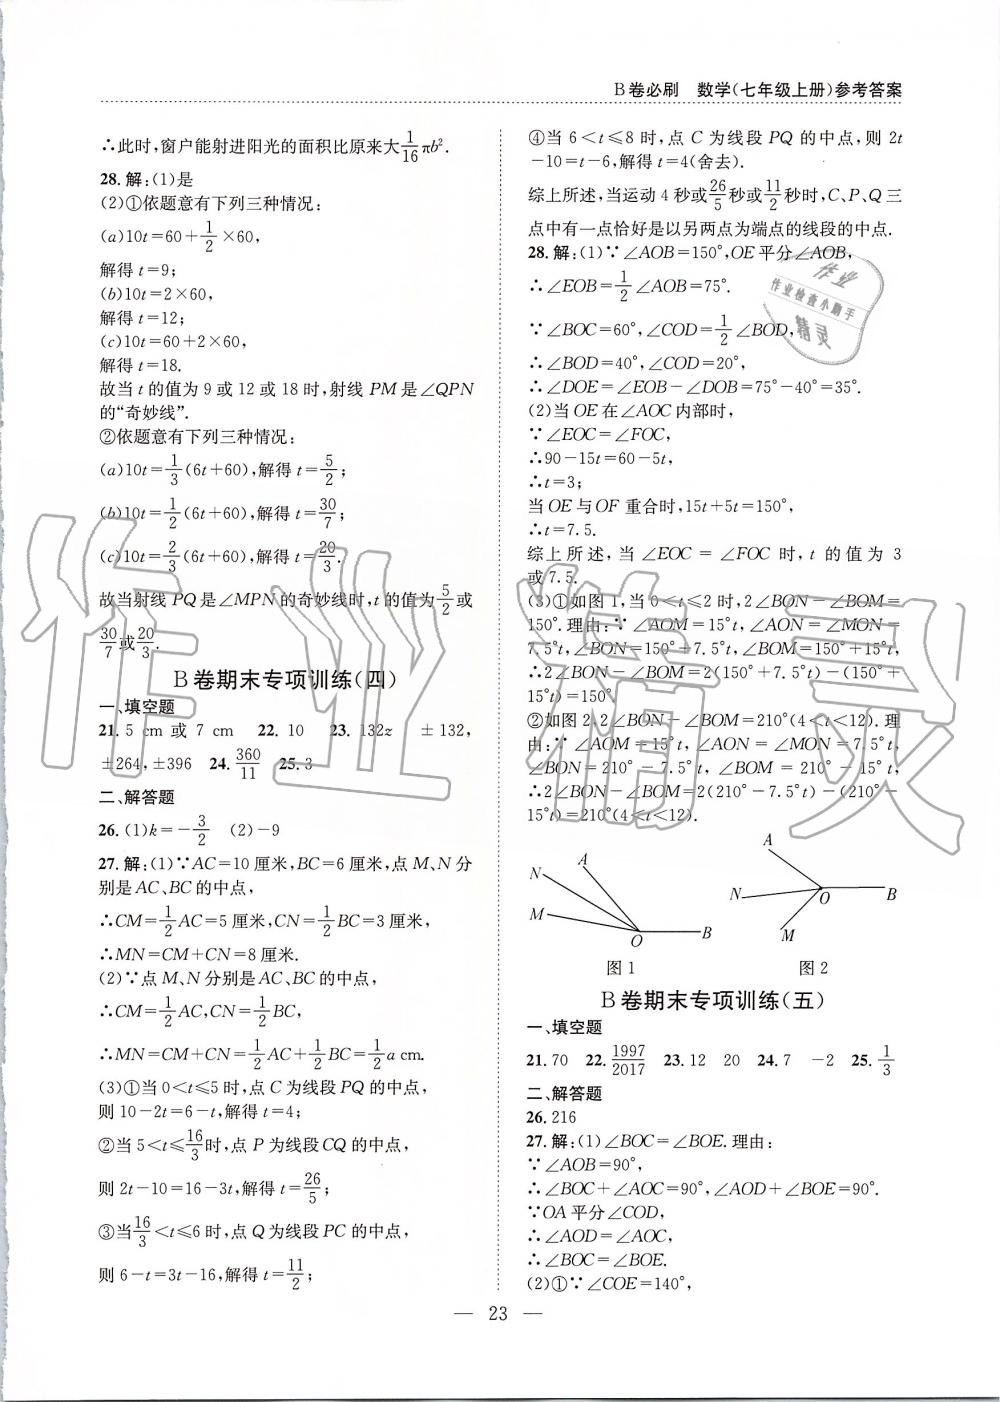 B卷必刷 数学(七年级上册)参考答案
∴此时,窗户能射进阳光的面积比原来大1/16πb².
28.解:(1)是
(2)①依题意有下列三种情况:
(a)10t=60+1/2×60,
解得 t=9;
(b)10t=2×60,
解得 t=12;
(c)10t=60+2×60,
解得 t=18.
故当 t 的值为 9 或 12 或 18 时,射线 PM 是∠QPN
的“奇妙线”.
②依题意有下列三种情况:
(a)10t=1/3(6t+60),解得 t=5/2;
(b)10t=1/2(6t+60),解得 t=30/7;
(c)10t=2/3(6t+60),解得 t=20/3.
故当射线 PQ 是∠MPN 的奇妙线时,t 的值为5/2或
30/7或20/3.
B卷期末专项训练(四)
一、填空题
21.5 cm 或 7 cm 22.10 23.132z ±132,
±264,±396 24.360/11 25.3
二、解答题
26.(1)k=-3/2 (2)-9
27.解:(1)∵AC=10 厘米,BC=6 厘米,点 M、N 分
别是 AC、BC 的中点,
∴CM=1/2AC=5 厘米,CN=1/2BC=3 厘米,
∴MN=CM+CN=8 厘米.
(2)∵点 M、N 分别是 AC、BC 的中点,
∴CM=1/2AC,CN=1/2BC,
∴MN=CM+CN=1/2AC+1/2BC=1/2a cm.
(3)①当 0<t≤5 时,点 C 为线段 PQ 的中点,
则 10-2t=6-t,解得 t=4;
②当 5<t≤16/3时,点 P 为线段 CQ 的中点,
则 2t-10=16-3t,解得 t=26/5;
③当16/3<t≤6 时,点 Q 为线段 PC 的中点,
则 6-t=3t-16,解得 t=11/2;
④当 6<t≤8 时,点 C 为线段 PQ 的中点,则 2t
-10=t-6,解得 t=4(舍去).
综上所述,当运动 4 秒或26/5秒或11/2秒时,C、P、Q 三
点中有一点恰好是以另两点为端点的线段的中点.
28.解:(1)∵∠AOB=150°,OE 平分∠AOB,
∴∠EOB=1/2∠AOB=75°.
∵∠BOC=60°,∠COD=1/2∠BOD,
∴∠BOD=40°,∠COD=20°,
∴∠DOE=∠EOB-∠DOB=75°-40°=35°.
(2)当 OE 在∠AOC 内部时,
∵∠EOC=∠FOC,
∴90-15t=60-5t,
∴t=3;
当 OE 与 OF 重合时,15t+5t=150°,
∴t=7.5.
综上所述,当∠EOC=∠FOC 时,t 的值为 3
或 7.5.
(3)①如图 1,当 0<t≤2 时,2∠BON-∠BOM=
150°.理由:∵∠AOM=15°t,∠AON=∠MON=
7.5°t,∠BON=150°+7.5°t,∠BOM=150°+15°t,
∴2∠BON-∠BOM=2(150°+7.5°t)-(150°+
15°t)=150°.
②如图 2,2∠BON-∠BOM=210°(4<t<12).理
由:∵∠AOM=15°t,∠AON=∠MON=7.5°t,
∠BON=210°-7.5°t,∠BOM=210°-15°t,
∴2∠BON-∠BOM=2(210°-7.5°t)-(210°-
15°t)=210°(4<t<12).
A
N
M
O
B
图 1
A
N
O
B
M
图 2
B卷期末专项训练(五)
一、填空题
21.70 22.1997/2017 23.12 20 24.7 -2 25.1/3
二、解答题
26.216
27.解:(1)∠BOC=∠BOE.理由:
∵∠AOB=90°,
∴∠BOC+∠AOC=90°,∠AOD+∠BOE=90°.
∵OA 平分∠COD,
∴∠AOD=∠AOC,
∴∠BOC=∠BOE.
(2)①∵∠COE=140°,
— 23 —
作业
作业检查小助手
精灵
作业精灵